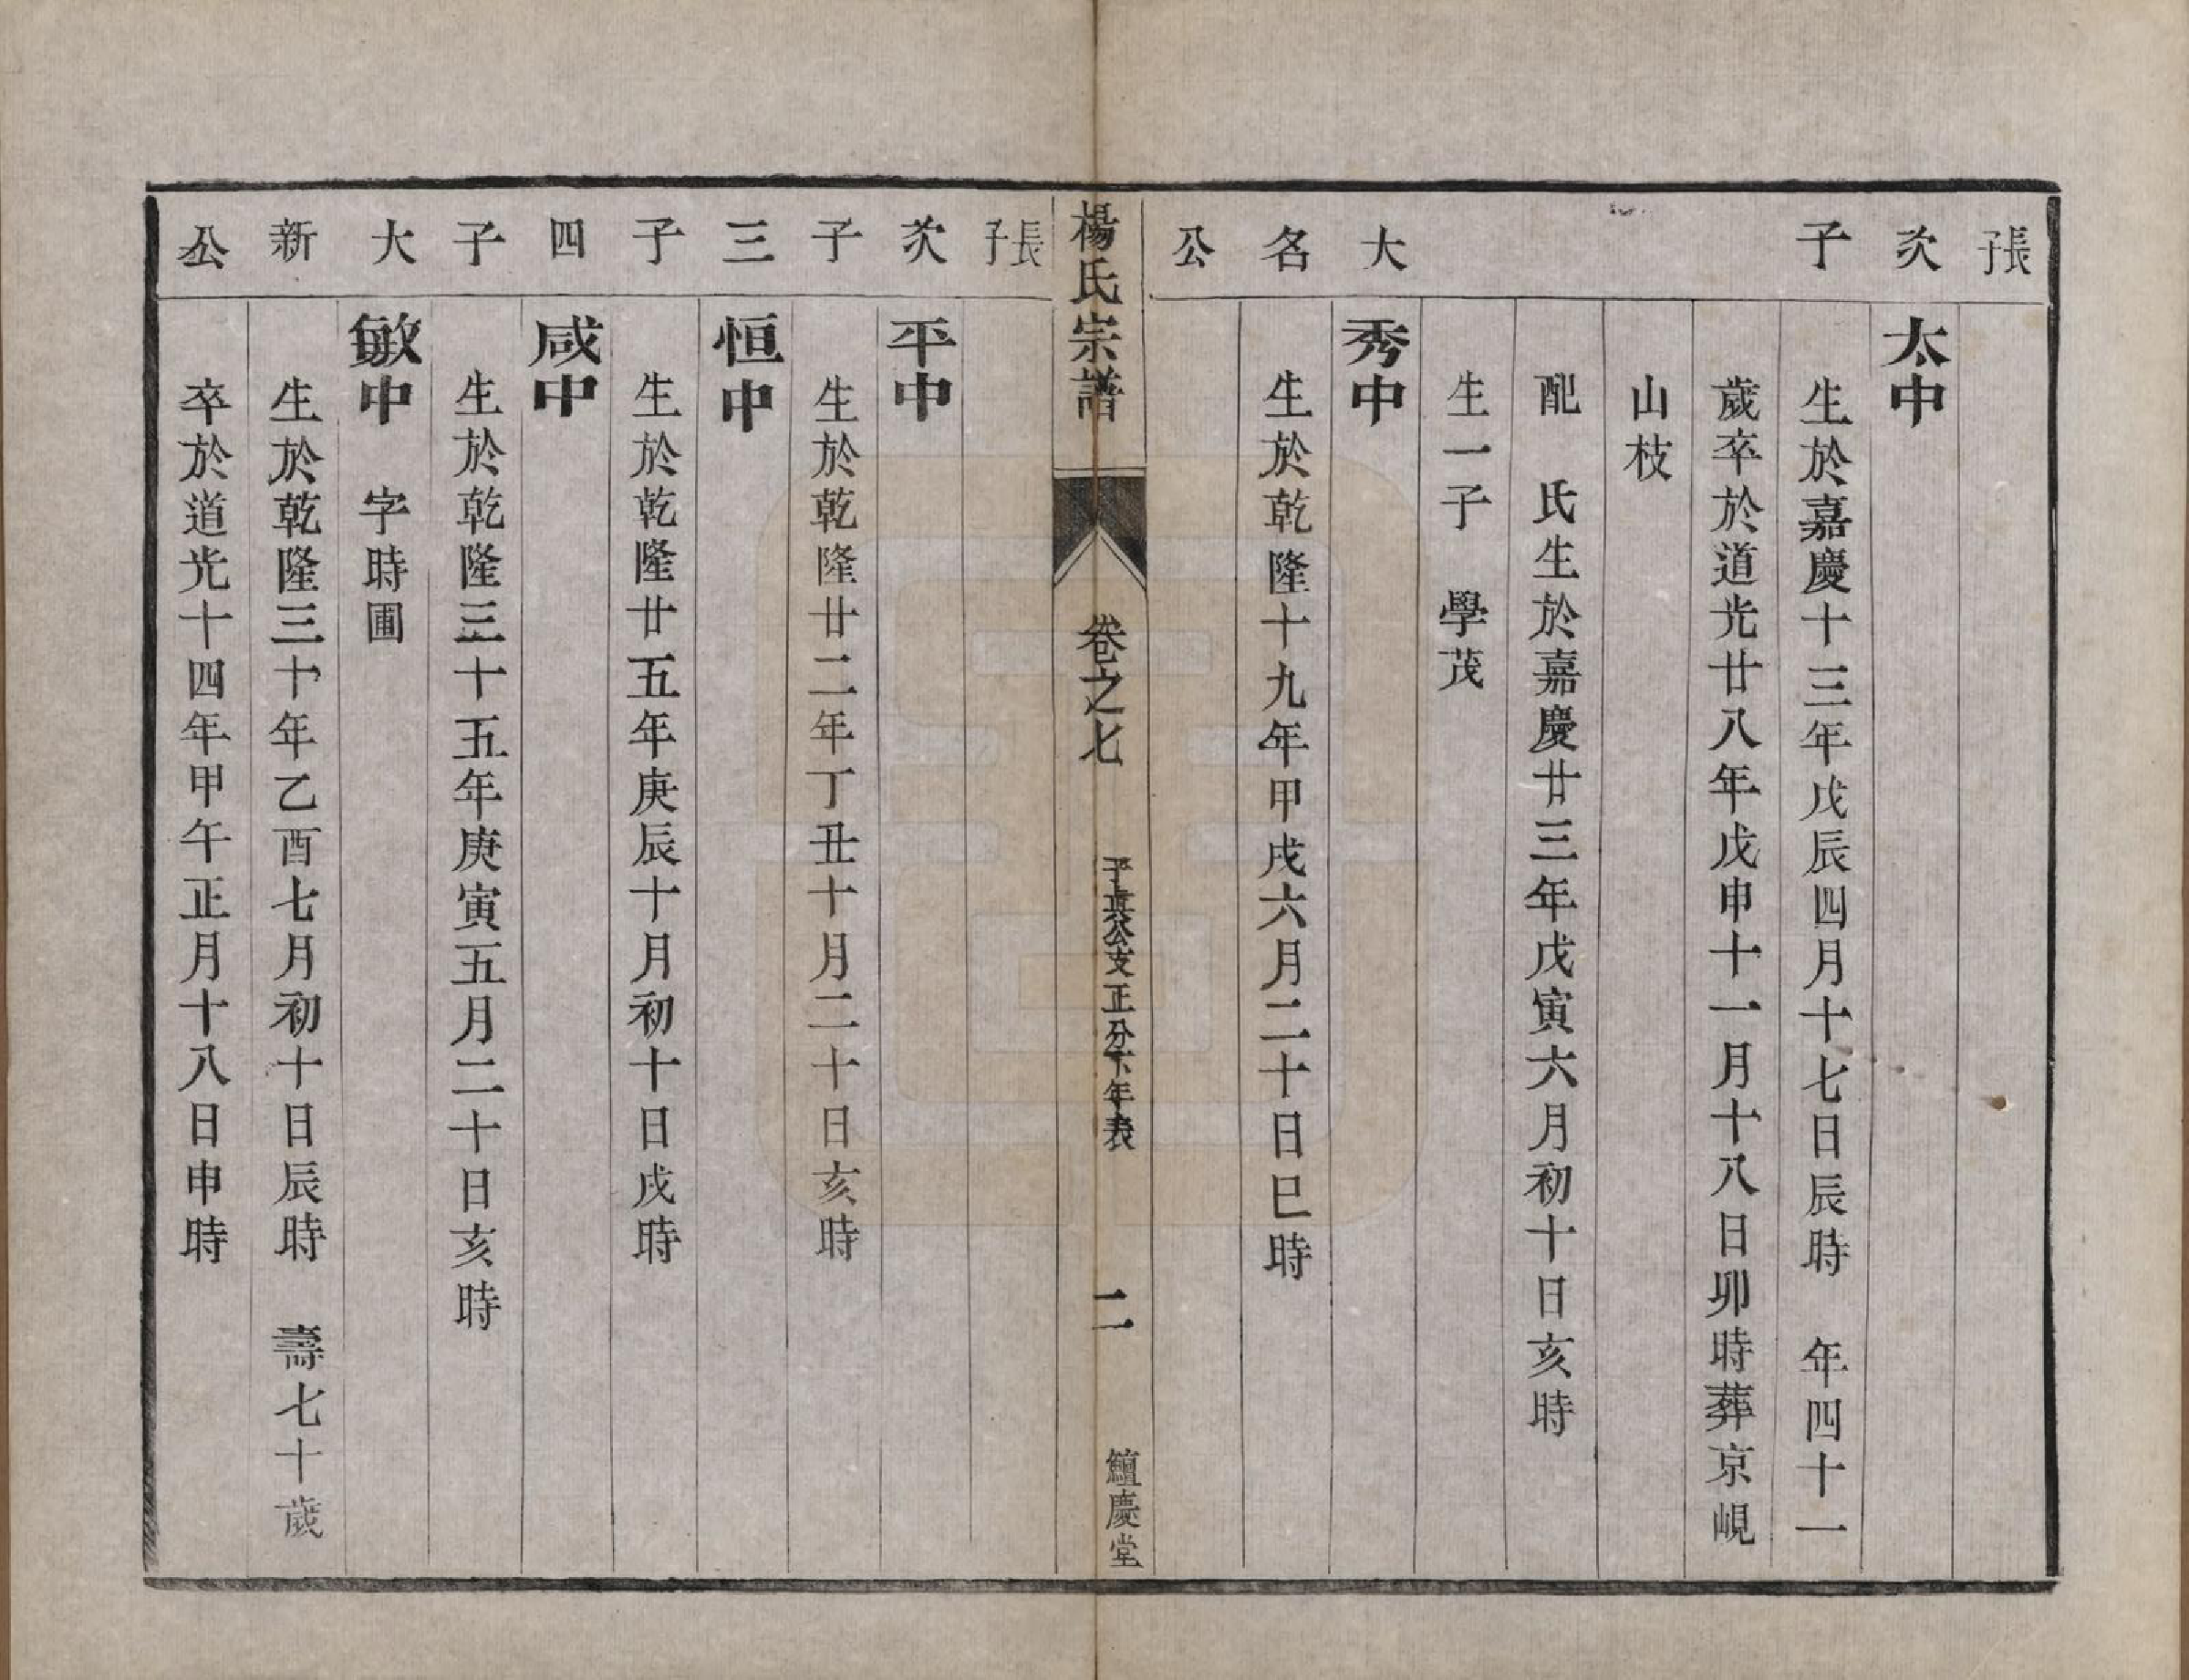 長子
次 太中
子 生於嘉慶十三年戊辰四月十七日辰時 年四十一
歲卒於道光廿八年戊申十一月十八日卯時葬京峴
山枝
配 氏生於嘉慶廿三年戊寅六月初十日亥時
生一子 學茂
大 秀中
名 生於乾隆十九年甲戌六月二十日巳時
公
楊氏宗譜 卷之七 子真公支正分下年表 二 鱣慶堂
長子
次 平中
子 生於乾隆廿二年丁丑十月二十日亥時
三 恒中
子 生於乾隆廿五年庚辰十月初十日戌時
四 咸中
子 生於乾隆三十五年庚寅五月二十日亥時
大 敏中 字時圃
新 生於乾隆三十年乙酉七月初十日辰時 壽七十歲
公 卒於道光十四年甲午正月十八日申時